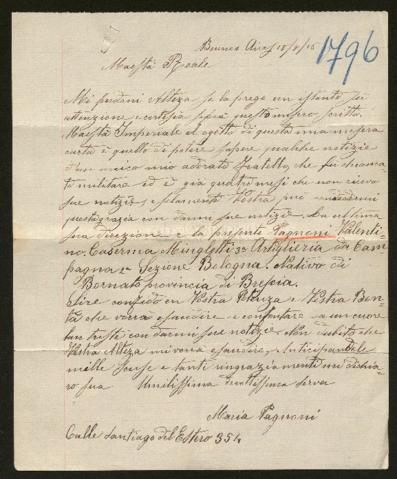 Buenos Aires
1796
Maestà Reale
Mi perdoni Altezza se la prego un istante di
attenzione e cortesia per questo mio scritto.
Maestà Imperiale el ogetto di questa mia misera
carta è quello di potere sapere qualche notizie
unico mio adorato fratello che fu chiamato
militare ed è già quatro mesi che non ricevo
sue notizie e solamente Vostra può
questa grazia con darmi sue notizie. La ultima
sua direzione e la presente Pagnoni Valenti-
no. Caserma Mingletti 3° Artiglieria da Cam-
pagna Sezione Bologna. Nativo di
Bornato provincia di Brescia.
confido in Vostra Altezza e Vostra Bon-
tà che vorrà esaudire e confortare a un cuore
tristi con darmi sue notizie. Non dubito che
Vostra Alteza mi vorrà esaudire. Anticipandole
mille scuse e tanti ringraziamenti mi dichia-
ro sua Umilissima serva
Maria Pagnoni
Calle Santiago del Estero 354